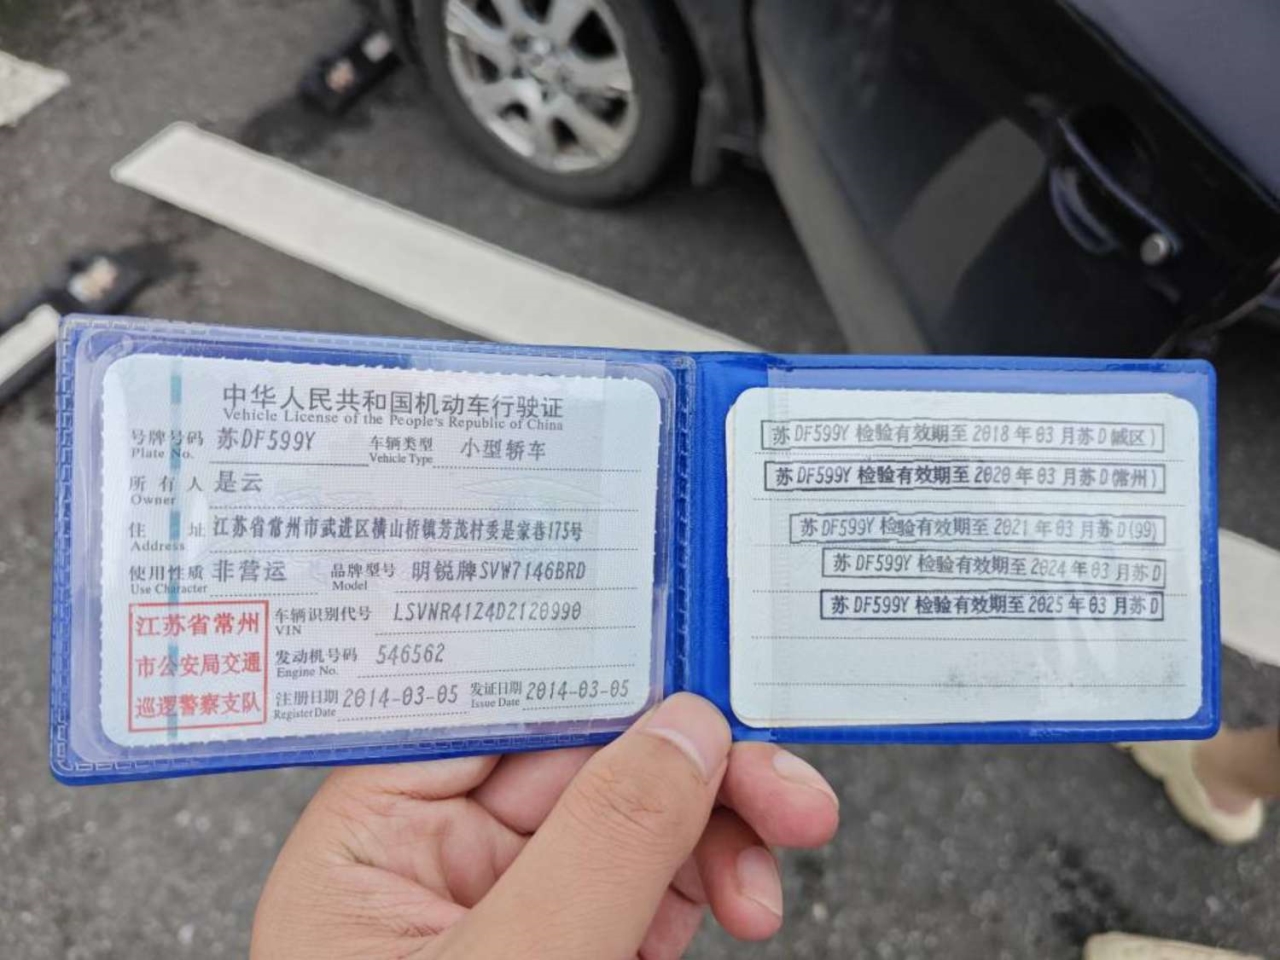 中华人民共和国机动车行驶证
Vehicle License of the People's Republic of China
号牌号码 苏DF599Y 车辆类型 小型轿车
Plate No. Vehicle Type
所有人 是云
Owner
住址 江苏省常州市武进区横山桥镇芳茂村委是家巷175号
Address
使用性质 非营运 品牌型号 明锐牌SVW7146BRD
Use Character Model
江苏省常州
市公安局交通
巡逻警察支队
车辆识别代号 LSVNR4124D2120990
VIN
发动机号码 546562
Engine No.
注册日期 2014-03-05 发证日期 2014-03-05
Register Date Issue Date
苏DF599Y 检验有效期至 2018 年 03 月苏D(城区)
苏DF599Y 检验有效期至 2020 年 03 月苏D(常州)
苏DF599Y 检验有效期至 2021 年 03 月苏D(99)
苏DF599Y 检验有效期至 2024 年 03 月苏D
苏DF599Y 检验有效期至 2025 年 03 月苏D